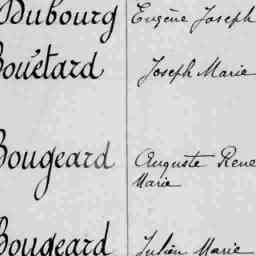 Dubourg Eugène Joseph
Bouétard Joseph Marie
Bougeard Auguste Rene
Marie
Bougeard Julien Marie